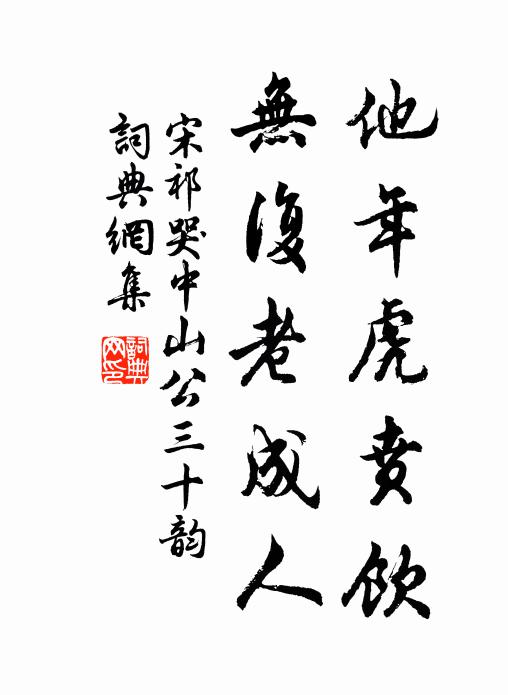 他年虎賁飲
無復老成人
宋祁哭中山公三十韵
詞典網集
詞典網印